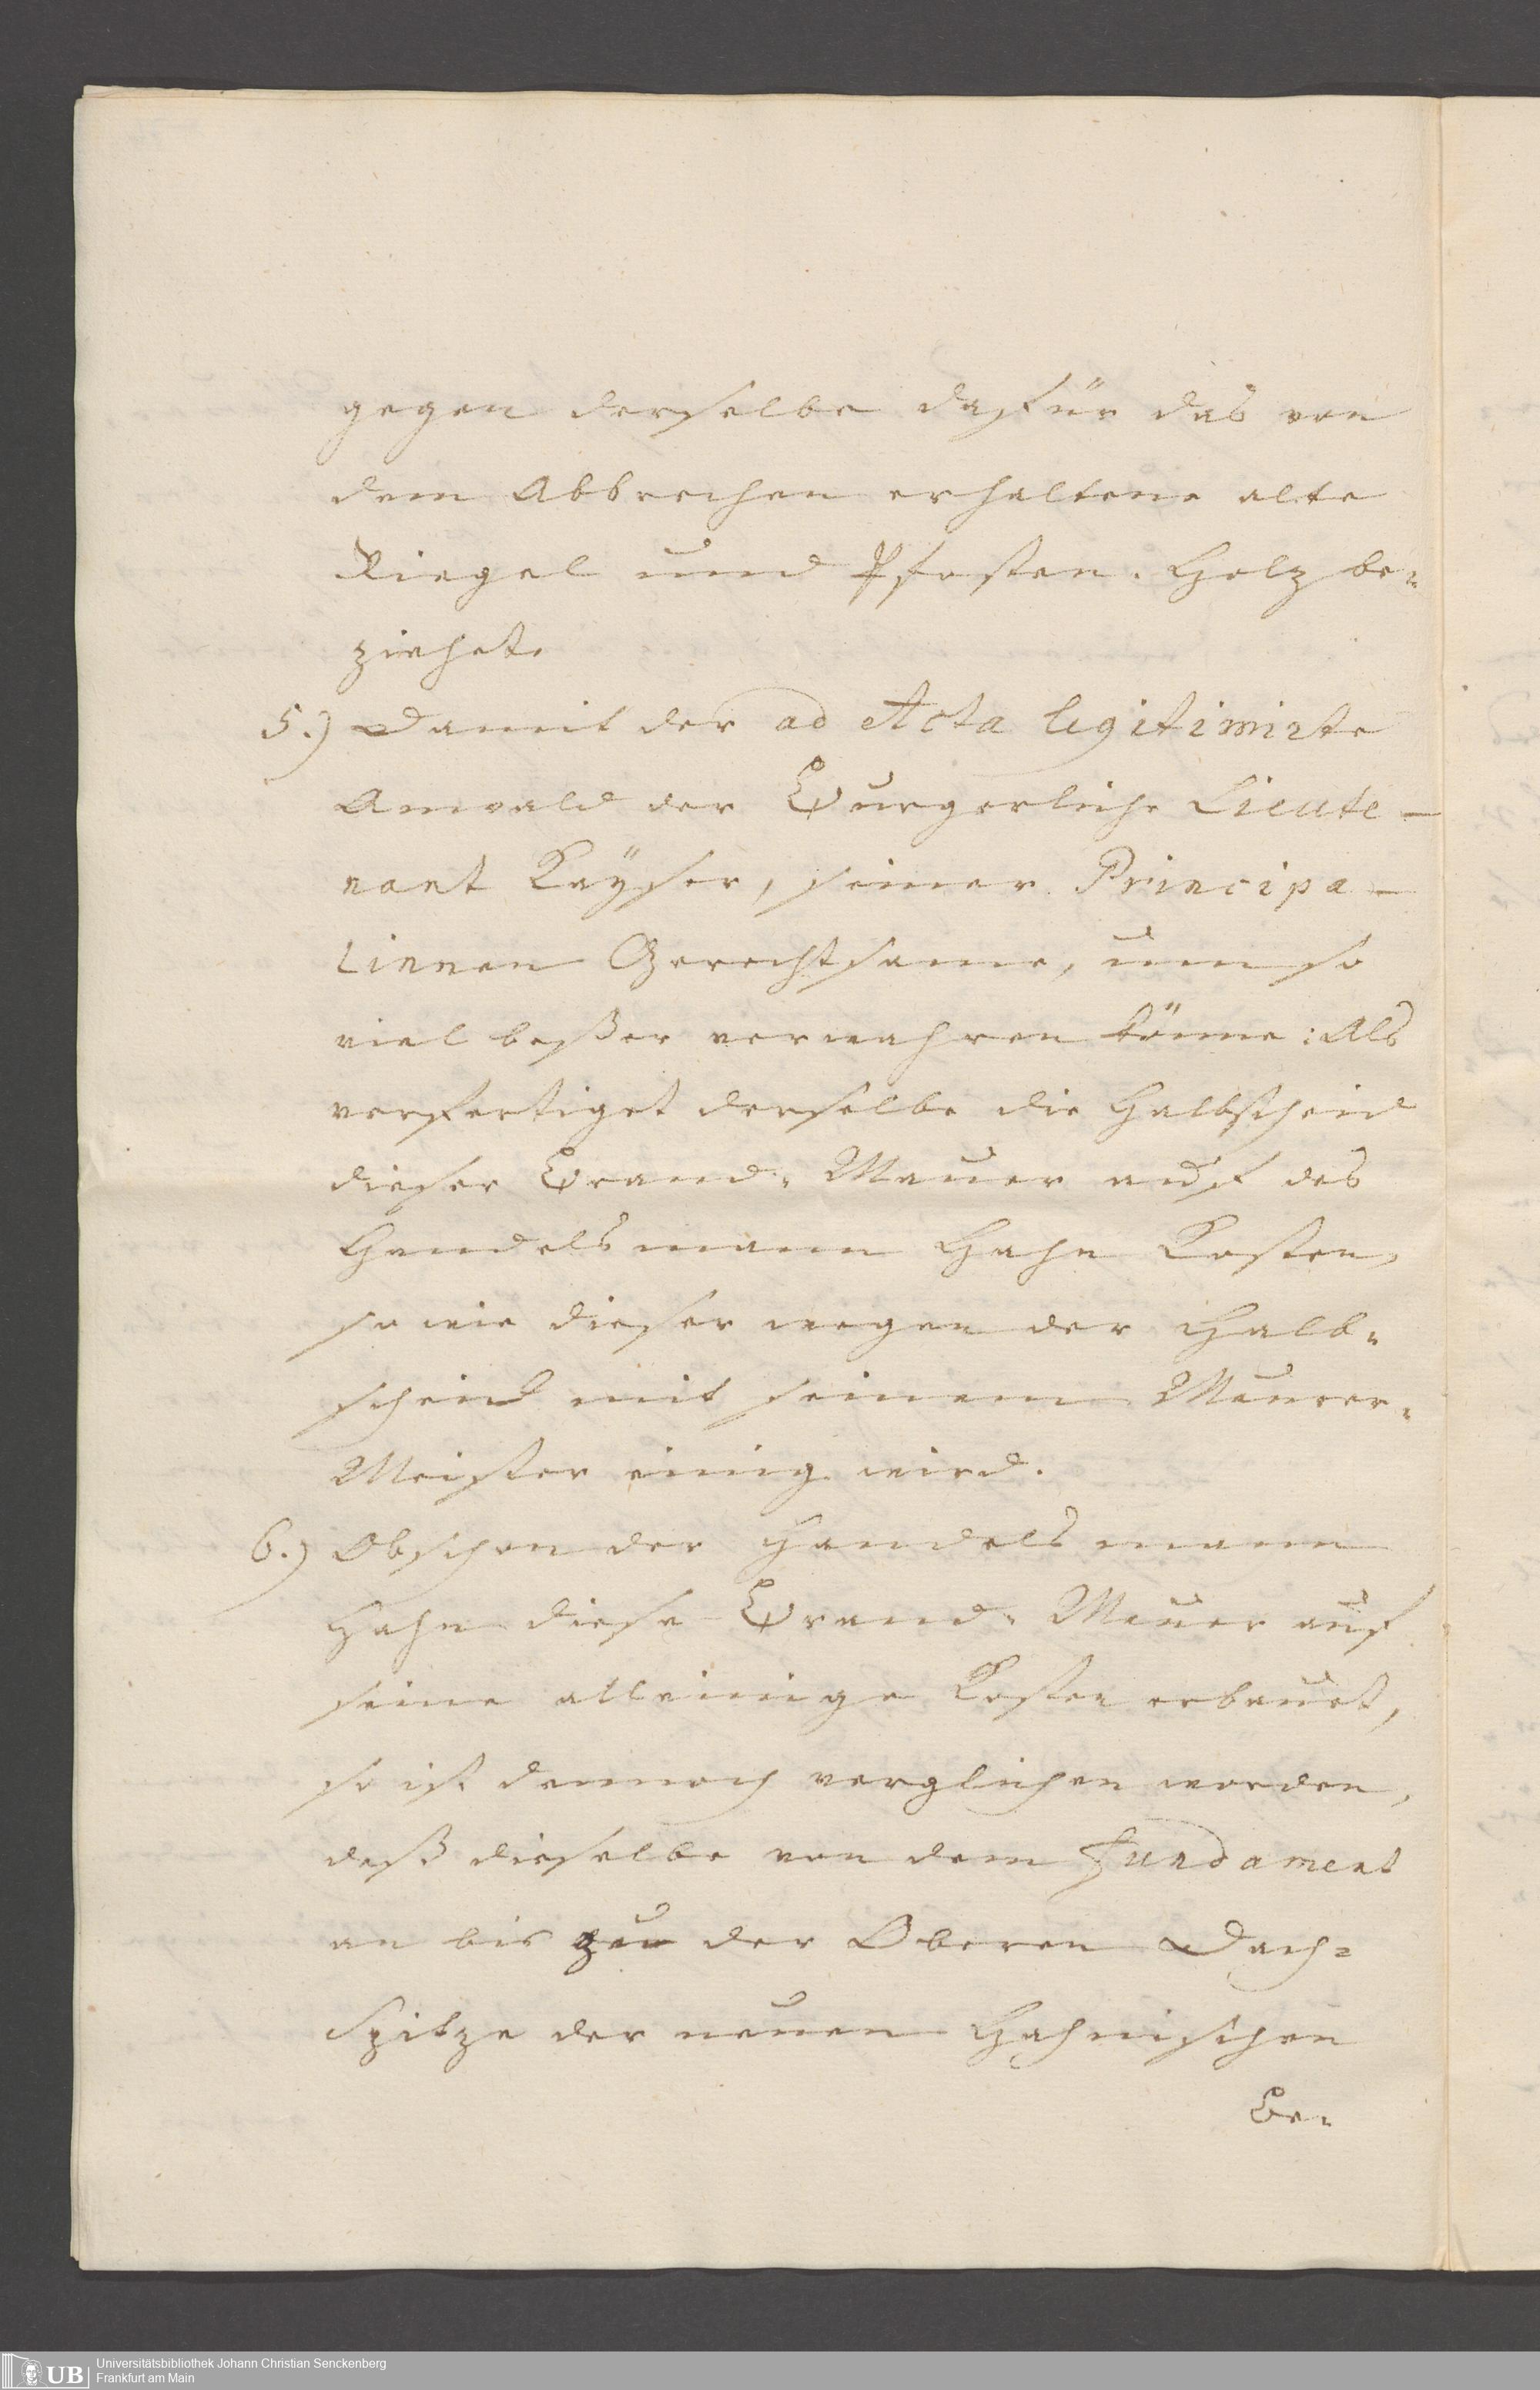 gegen derselbe dafür das von
dem Abbrechen erhaltene alte
Riegel und Pfosten-Holz be-
ziehet.
5.) Damit der ad Acta legitimirte
Anwald der Burgerliche Lieute-
nant Kayser, seiner Principa-
linnen Gerechtsame, um so
viel beßer verwahren könne: Als
verfertiget derselbe die Halbscheid
dieser Brand-Mauer auf des
Handelsmann Hahn Kosten,
so wie dieser wegen der Halb-
scheid mit seinem Maurer-
Meister einig wird.
6.) Obschon der Handelsmann
Hahn diese Brand-Mauer auf
seine alleinige Kosten erbauet,
so ist dennoch verglichen worden,
daß dieselbe von dem Fundament
an bis zu der Oberen Dach-
Spitze der neuen Hahnischen
Be-
UB
Universitätsbibliothek Johann Christian Senckenberg
Frankfurt am Main